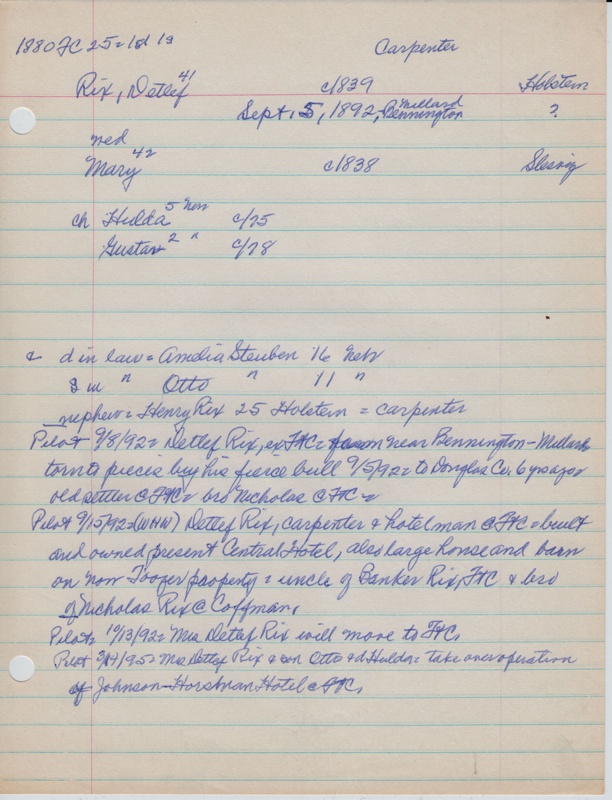 1880 FC 25 = 1d 1s
Carpenter
Rix, Detlef 41 c/1839 Holstein
Sept. 5, 1892, Millard Bennington ?
wed
Mary 42 c/1838 Slesvig
ch Hulda 5 Neb c/75
Gustav 2 " c/78
& d in law = Amelia Steuben 16 Neb
s in " Otto " 11 "
nephew = Henry Rix 25 Holstein = carpenter
Pilot 9/8/92 = Detlef Rix, ex FtC = farm near Bennington - Millard
torn to pieces by his fierce bull 9/5/92 = to Douglas Co. 6 yrs ago =
old settler @ FtC = bro Nicholas @ FtC =
Pilot 9/15/92 = (WHW) Detlef Rix, carpenter & hotel man @ FtC = built
and owned present Central Hotel, also large house and barn
on now Toozer property = uncle of Banker Rix, FtC & bro
of Nicholas Rix @ Coffman,
Pilot = 10/13/92 = Mrs Detlef Rix will move to FtC,
Pilot /95 = Mrs Detlef Rix & son Otto & d Hulda = take over operation
of Johnson - Horstman Hotel @ FtC,